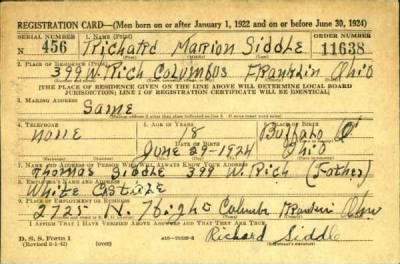 REGISTRATION CARD—(Men born on or after January 1, 1922 and on or before June 30, 1924)
SERIAL NUMBER 1. NAME (Print) ORDER NUMBER
N 456 Richard Marion Siddle 11638
2. PLACE OF RESIDENCE (Print)
399 W. Rich Columbos Franklin Ohio
[THE PLACE OF RESIDENCE GIVEN ON THE LINE ABOVE WILL DETERMINE LOCAL BOARD
JURISDICTION; LINE 2 OF REGISTRATION CERTIFICATE WILL BE IDENTICAL]
3. MAILING ADDRESS
Same
4. TELEPHONE 5. AGE IN YEARS 6. PLACE OF BIRTH
None 18 Buffalo
DATE OF BIRTH
June 29-1924 Ohio
7. NAME AND ADDRESS OF PERSON WHO WILL ALWAYS KNOW YOUR ADDRESS
Thomas Siddle 399 W. Rich (Father)
8. EMPLOYER'S NAME AND ADDRESS
White
9. PLACE OF EMPLOYMENT OR BUSINESS
2725 N. High Ohio
I AFFIRM THAT I HAVE VERIFIED ABOVE ANSWERS AND THAT THEY ARE TRUE.
D. S. S. Form 1
(Revised 6-1-42)
Richard Siddle